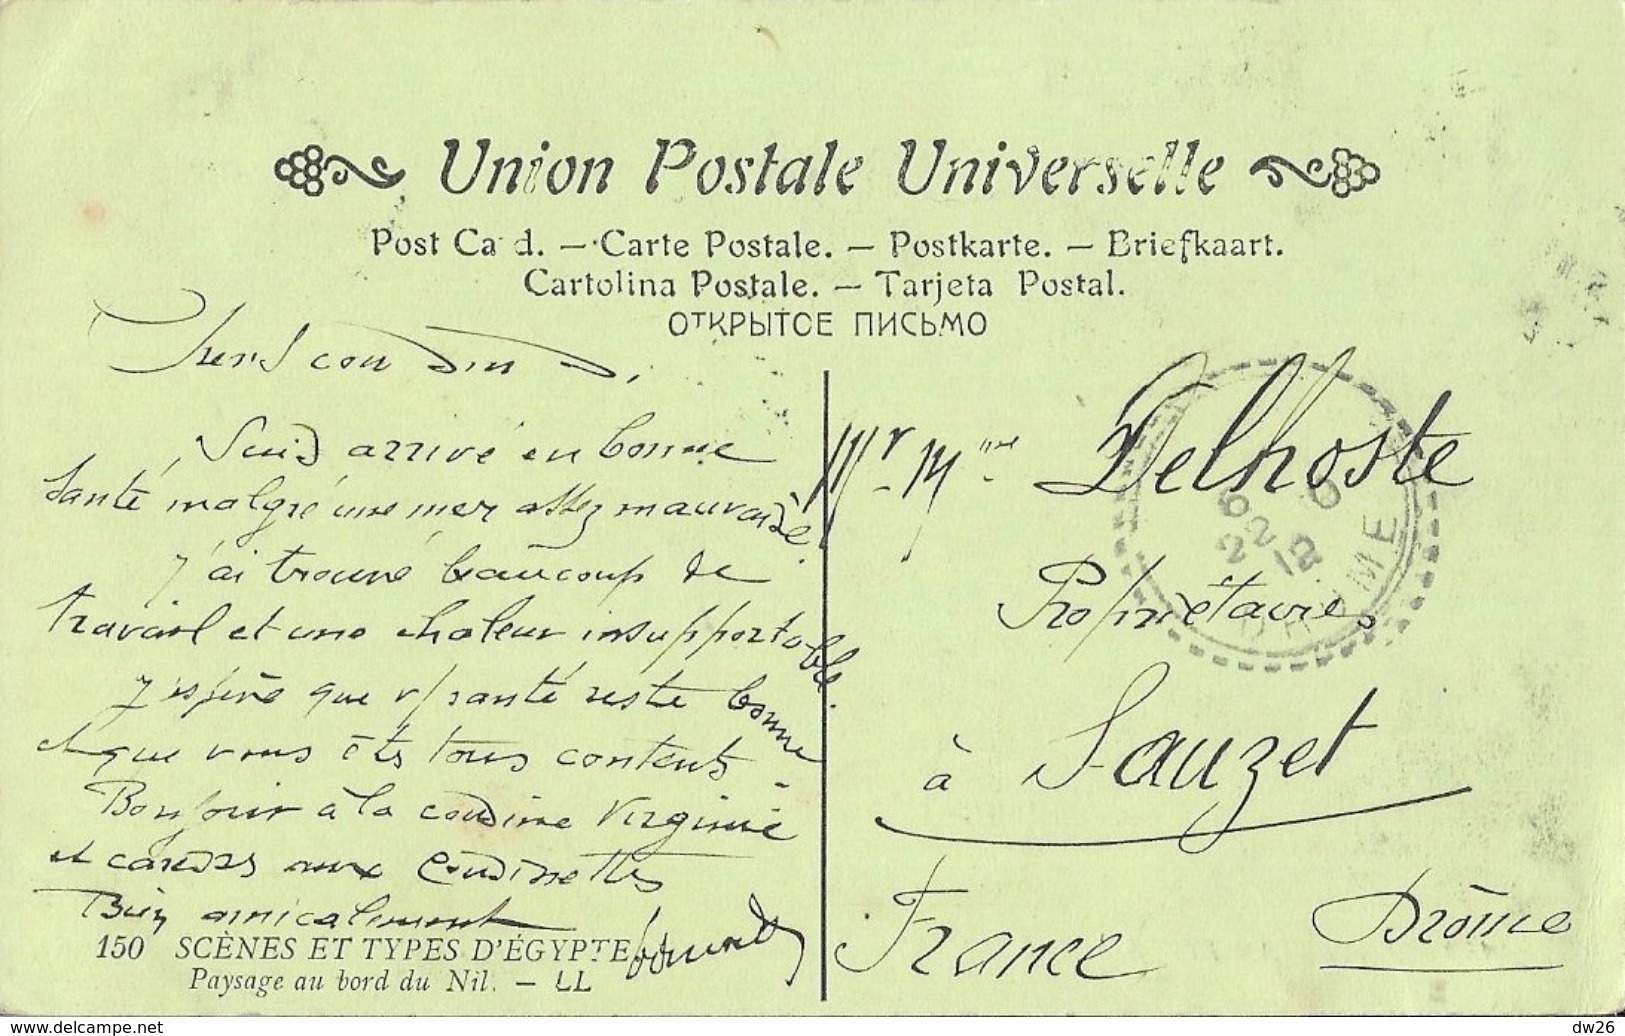 Union Postale Universelle
Post Ca d. — Carte Postale. — Postkarte. — Briefkaart.
Cartolina Postale. — Tarjeta Postal.
ОТКРЫТОЕ ПИСЬМО
Chers cousins,
Suis arrivé en bonne
santé malgré une mer assez mauvaise.
J'ai trouvé beaucoup de
travail et une chaleur insupportable.
J'espère que v/ santé reste bonne
et que vous êts tous contents.
Bonjour à la cousine Virginie
et caresses aux cousinettes
Bien amicalement
150 SCÈNES ET TYPES D'ÉGYPTE
Paysage au bord du Nil. — LL
Mr. Mme. Delhoste
Propriètaires
à Sauzet
France Drôme
6 6
22 12
DROME
www.delcampe.net
dw26